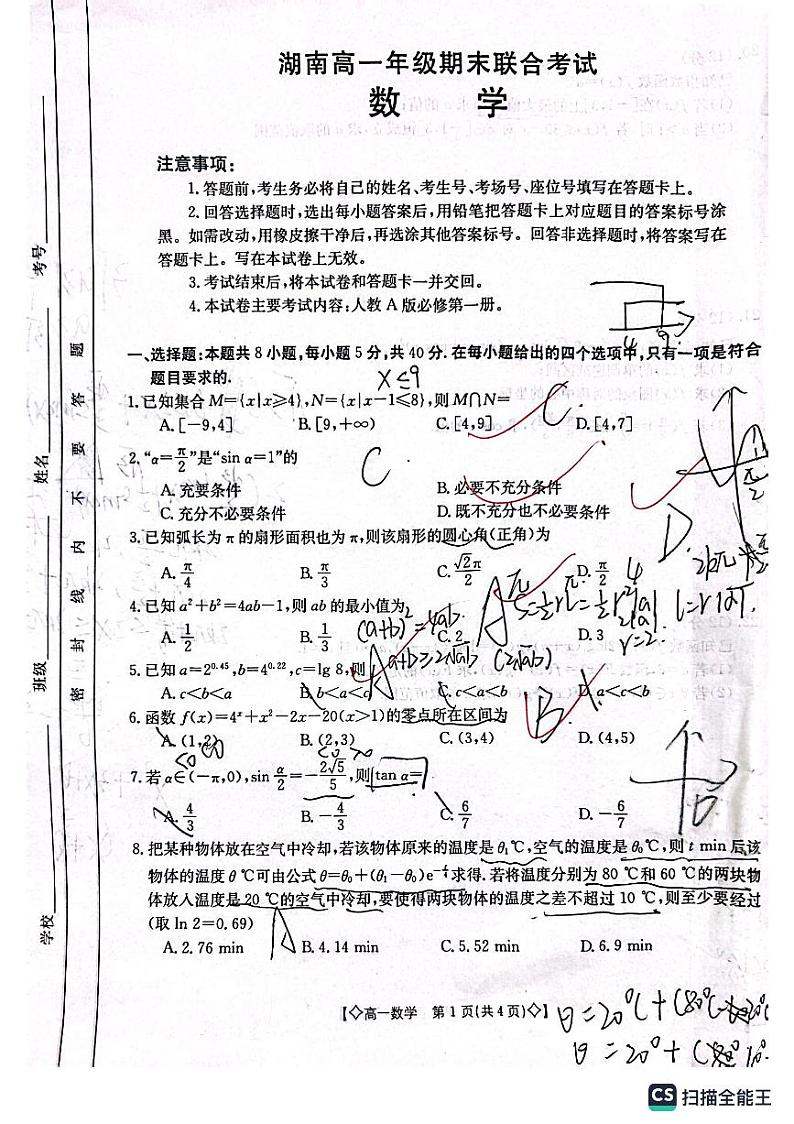 湖南高一年级期末联合考试
数 学
注意事项:
1.答题前,考生务必将自己的姓名、考生号、考场号、座位号填写在答题卡上。
2.回答选择题时,选出每小题答案后,用铅笔把答题卡上对应题目的答案标号涂
黑。如需改动,用橡皮擦干净后,再选涂其他答案标号。回答非选择题时,将答案写在
答题卡上。写在本试卷上无效。
3.考试结束后,将本试卷和答题卡一并交回。
4.本试卷主要考试内容:人教A版必修第一册。
4 9
一、选择题:本题共8小题,每小题5分,共40分.在每小题给出的四个选项中,只有一项是符合
题目要求的.
x≤9
1.已知集合M={x|x≥4},N={x|x-1≤8},则M∩N= C
A.[-9,4] B.[9,+∞) C.[4,9] D.[4,7]
2.“α=π/2”是“sin α=1”的 C
A.充要条件 B.必要不充分条件
C.充分不必要条件 D.既不充分也不必要条件
3.已知弧长为π的扇形面积也为π,则该扇形的圆心角(正角)为 D
A.π/4 B.π/3 C.√2π/2 D.π/2
4.已知a²+b²=4ab-1,则ab的最小值为
A.1/2 B.1/3 C.2 D.3
(a+b)²=4ab
a+b≥2√ab (2√ab)
r=2.
5.已知a=2^0.45,b=4^0.22,c=lg 8,则
A.c<b<a B.b<a<c C.c<a<b D.a<c<b
6.函数f(x)=4ˣ+x²-2x-20(x>1)的零点所在区间为 B
A.(1,2) B.(2,3) C.(3,4) D.(4,5)
7.若α∈(-π,0),sin α/2=-2√5/5,则tan α=
A.4/3 B.-4/3 C.6/7 D.-6/7
8.把某种物体放在空气中冷却,若该物体原来的温度是θ₁℃,空气的温度是θ₀℃,则t min后该
物体的温度θ ℃可由公式θ=θ₀+(θ₁-θ₀)e^(-t/4)求得.若将温度分别为80 ℃和60 ℃的两块物
体放入温度是20 ℃的空气中冷却,要使得两块物体的温度之差不超过10 ℃,则至少要经过
(取ln 2=0.69)
A.2.76 min B.4.14 min C.5.52 min D.6.9 min
【◇高一数学 第1页(共4页)◇】
考号
姓名
班级
学校
密 封 线 内 不 要 答 题
CS 扫描全能王